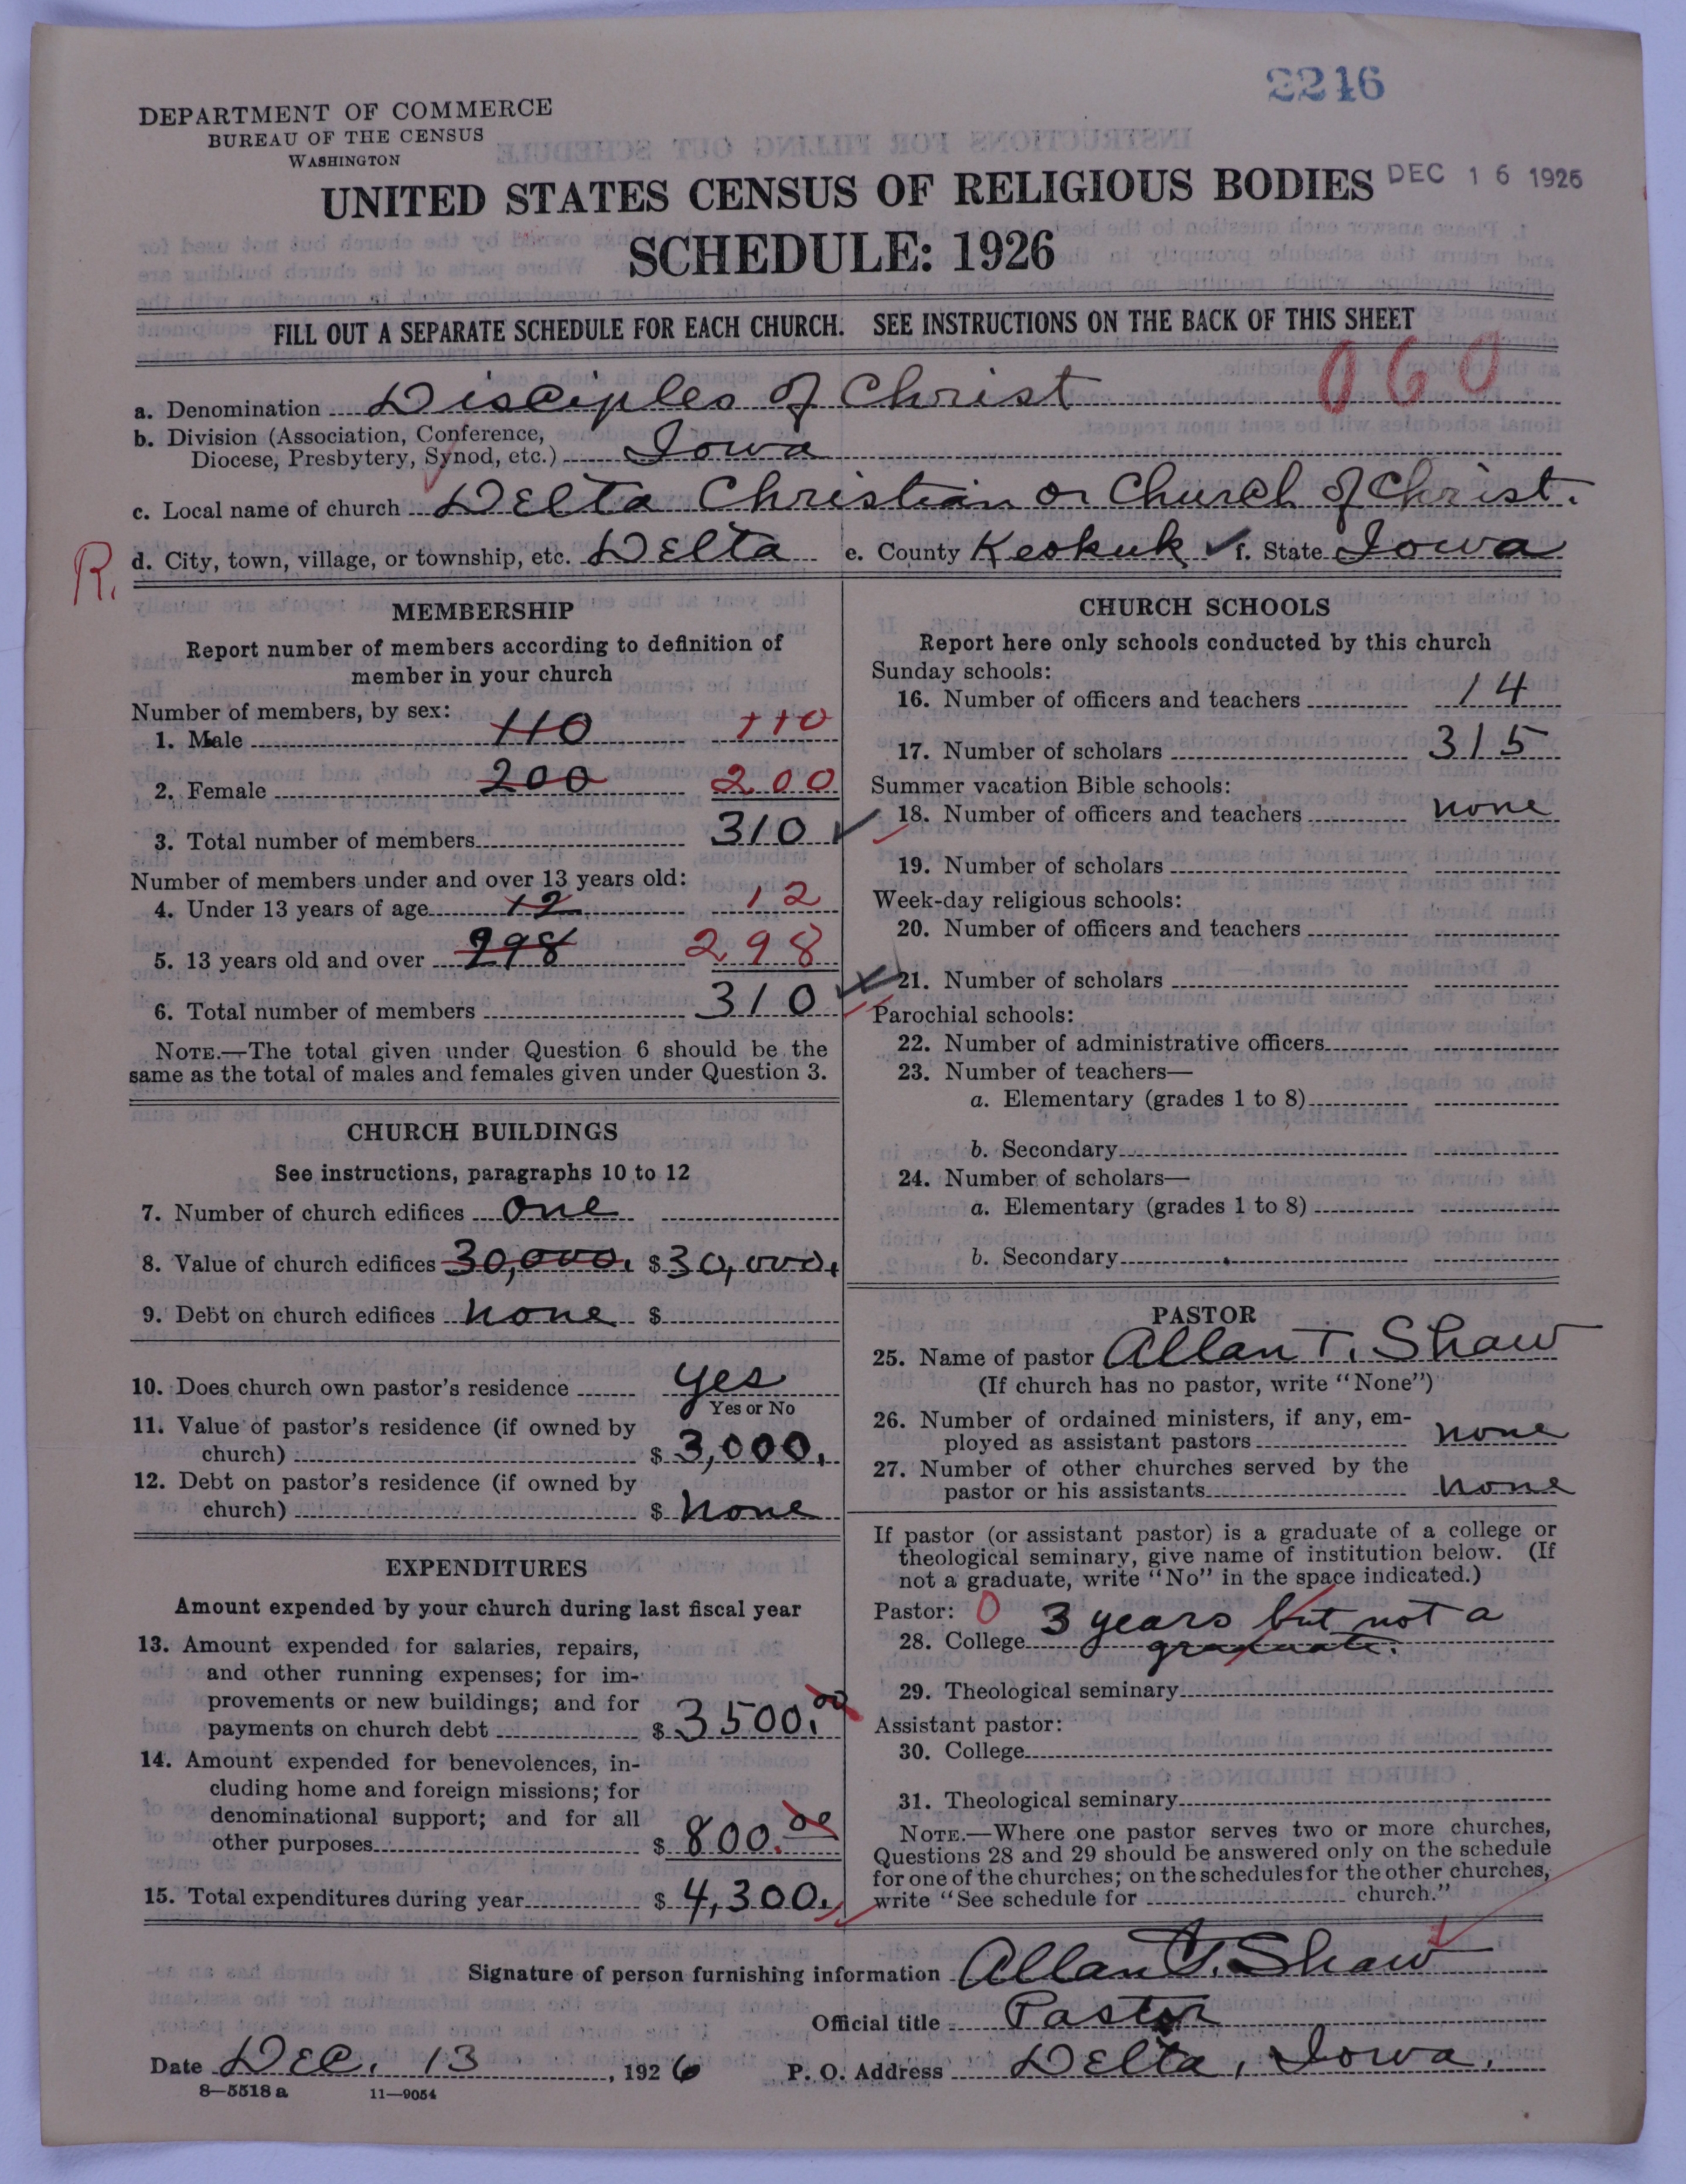 2216
DEPARTMENT OF COMMERCE
BUREAU OF THE CENSUS
WASHINGTON
UNITED STATES CENSUS OF RELIGIOUS BODIES DEC 16 1926
SCHEDULE: 1926
FILL OUT A SEPARATE SCHEDULE FOR EACH CHURCH. SEE INSTRUCTIONS ON THE BACK OF THIS SHEET
060
a. Denomination Disciples of Christ
b. Division (Association, Conference,
Diocese, Presbytery, Synod, etc.) Iowa
c. Local name of church Delta Christian or Church of Christ.
R. d. City, town, village, or township, etc. Delta e. County Keokuk ✓ f. State Iowa
MEMBERSHIP
Report number of members according to definition of
member in your church
Number of members, by sex:
1. Male 110 110
2. Female 200 200
3. Total number of members 310 ✓
Number of members under and over 13 years old:
4. Under 13 years of age 12 12
5. 13 years old and over 298 298
6. Total number of members 310 ✓
NOTE.—The total given under Question 6 should be the
same as the total of males and females given under Question 3.
CHURCH BUILDINGS
See instructions, paragraphs 10 to 12
7. Number of church edifices one
8. Value of church edifices 30,000. $ 30,000.
9. Debt on church edifices none $
10. Does church own pastor's residence yes
Yes or No
11. Value of pastor's residence (if owned by
church) $ 3,000.
12. Debt on pastor's residence (if owned by
church) $ none
EXPENDITURES
Amount expended by your church during last fiscal year
13. Amount expended for salaries, repairs,
and other running expenses; for im-
provements or new buildings; and for
payments on church debt $ 3500.00
14. Amount expended for benevolences, in-
cluding home and foreign missions; for
denominational support; and for all
other purposes $ 800.00
15. Total expenditures during year $ 4,300.
CHURCH SCHOOLS
Report here only schools conducted by this church
Sunday schools:
16. Number of officers and teachers 14
17. Number of scholars 315
Summer vacation Bible schools:
18. Number of officers and teachers none
19. Number of scholars
Week-day religious schools:
20. Number of officers and teachers
21. Number of scholars
Parochial schools:
22. Number of administrative officers
23. Number of teachers—
a. Elementary (grades 1 to 8)
b. Secondary
24. Number of scholars—
a. Elementary (grades 1 to 8)
b. Secondary
PASTOR
25. Name of pastor Allan T. Shaw
(If church has no pastor, write "None")
26. Number of ordained ministers, if any, em-
ployed as assistant pastors none
27. Number of other churches served by the
pastor or his assistants none
If pastor (or assistant pastor) is a graduate of a college or
theological seminary, give name of institution below. (If
not a graduate, write "No" in the space indicated.)
Pastor: 0 3 years but not a
28. College graduate.
29. Theological seminary
Assistant pastor:
30. College
31. Theological seminary
NOTE.—Where one pastor serves two or more churches,
Questions 28 and 29 should be answered only on the schedule
for one of the churches; on the schedules for the other churches,
write "See schedule for church."
Signature of person furnishing information Allan T. Shaw
Official title Pastor
Date Dec. 13, 1926 P. O. Address Delta, Iowa.
8—5518 a 11—9054